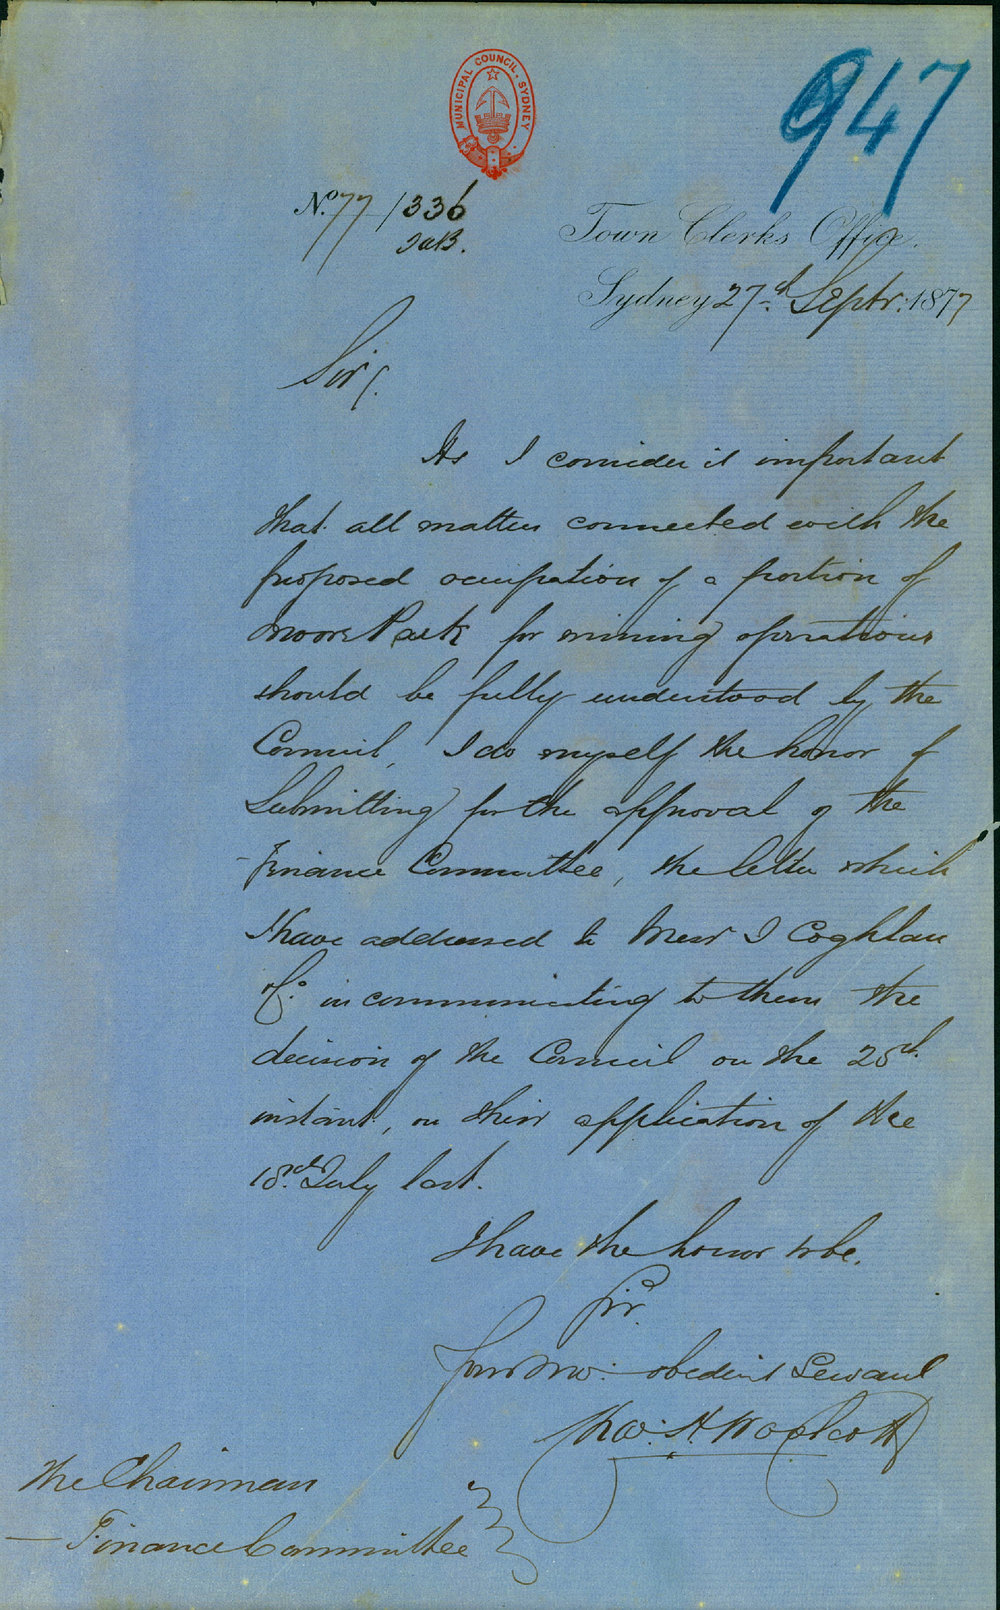 MUNICIPAL COUNCIL, SYDNEY
947
No. 77/336
Town Clerks Office.
Sydney 27th Septr. 1877
Sir,
As I consider it important
that all matters connected with the
proposed occupation of a portion of
Moore Park for mining operations
should be fully understood by the
Council, I do myself the honor of
Submitting for the approval of the
Finance Committee, the letter which
I have addressed to Messr J Coghlan
& Co. in communicating to them the
decision of the Council on the 25th
instant, on their application of the
18th July last.
I have the honor to be,
Sir
Your Mo: obedient Servant
Chas. H. Woolcott
The Chairman
Finance Committee